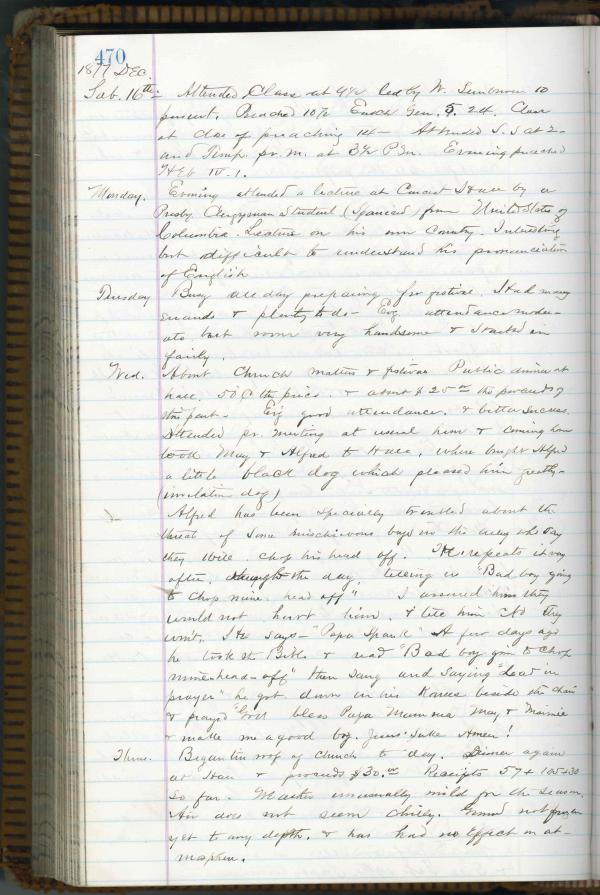 470
1877 Dec.
Sab. 16th - Attended Class at 9½ led by W. 10
present. Preached 10½ Enoch Gen. 5. 24. Class
at close of preaching 14 - Attended S. S at 2 -
and Temp. pr. m. at 3½ P.M. Evening preached
Heb IV. 1.
Monday. Evening attended a lecture at Concert Hall by a
Presby. Clergyman Student (Spaniard) from United States of
Columbia. Lecture on his own Country. Interesting
but difficult to understand his pronunciation
of English
Tuesday Busy all day preparing for festival. Had many
errands & plenty to do - Evg attendance moder-
ate but room very handsome & started in
fairly.
Wed. About Church matters & festival Public dinner at
hall. 50 ¢ the price. & about $25.00 the proceeds of
the part - Evg good attendance. & better success.
Attended pr. meeting at usual time & coming home
took May & Alfred to Hall, where bought Alfred
a little black dog which pleased him greatly -
(imitation dog)
Alfred has been specially troubled about the
threat of some mischievous boys in the alley who say
they will chop his head off. He repeats it very
often, through the day, telling us "Bad boy going
to chop mine head off" I assured him they
would not hurt him, & tell him No they
wont. He says - "Papa Spank" A few days ago
he took st Bible & read "Bad boy goin to chop
mine head off" then sang and saying "Lead in
prayer" he got down on his Knees beside the chair
& prayed "God bless Papa Mamma May & Mamie
& make me a good boy. Jesus' sake Amen!
Thurs. Began tin roof of Church to day. Dinner again
at Hall & proceeds $30.00 Receipts 57 + 105 + 30
so far. Weather unusually mild for the season.
Air does not seem chilly. Ground not frozen
yet to any depth. & has had no effect on at-
mosphere.